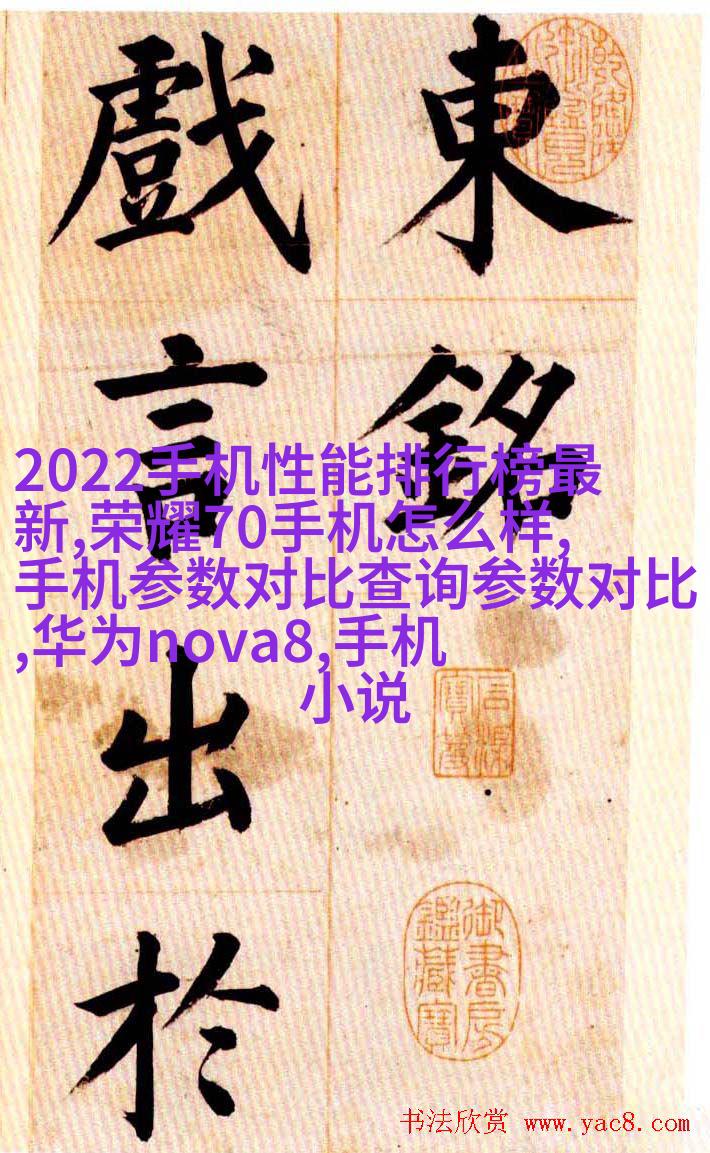 東銘
戲言出於
2022手机性能排行榜最
新,荣耀70手机怎么样,
手机参数对比查询参数对比
,华为nova8,手机
小说
御書房鑑藏寶
书法欣赏 www.yac8.com